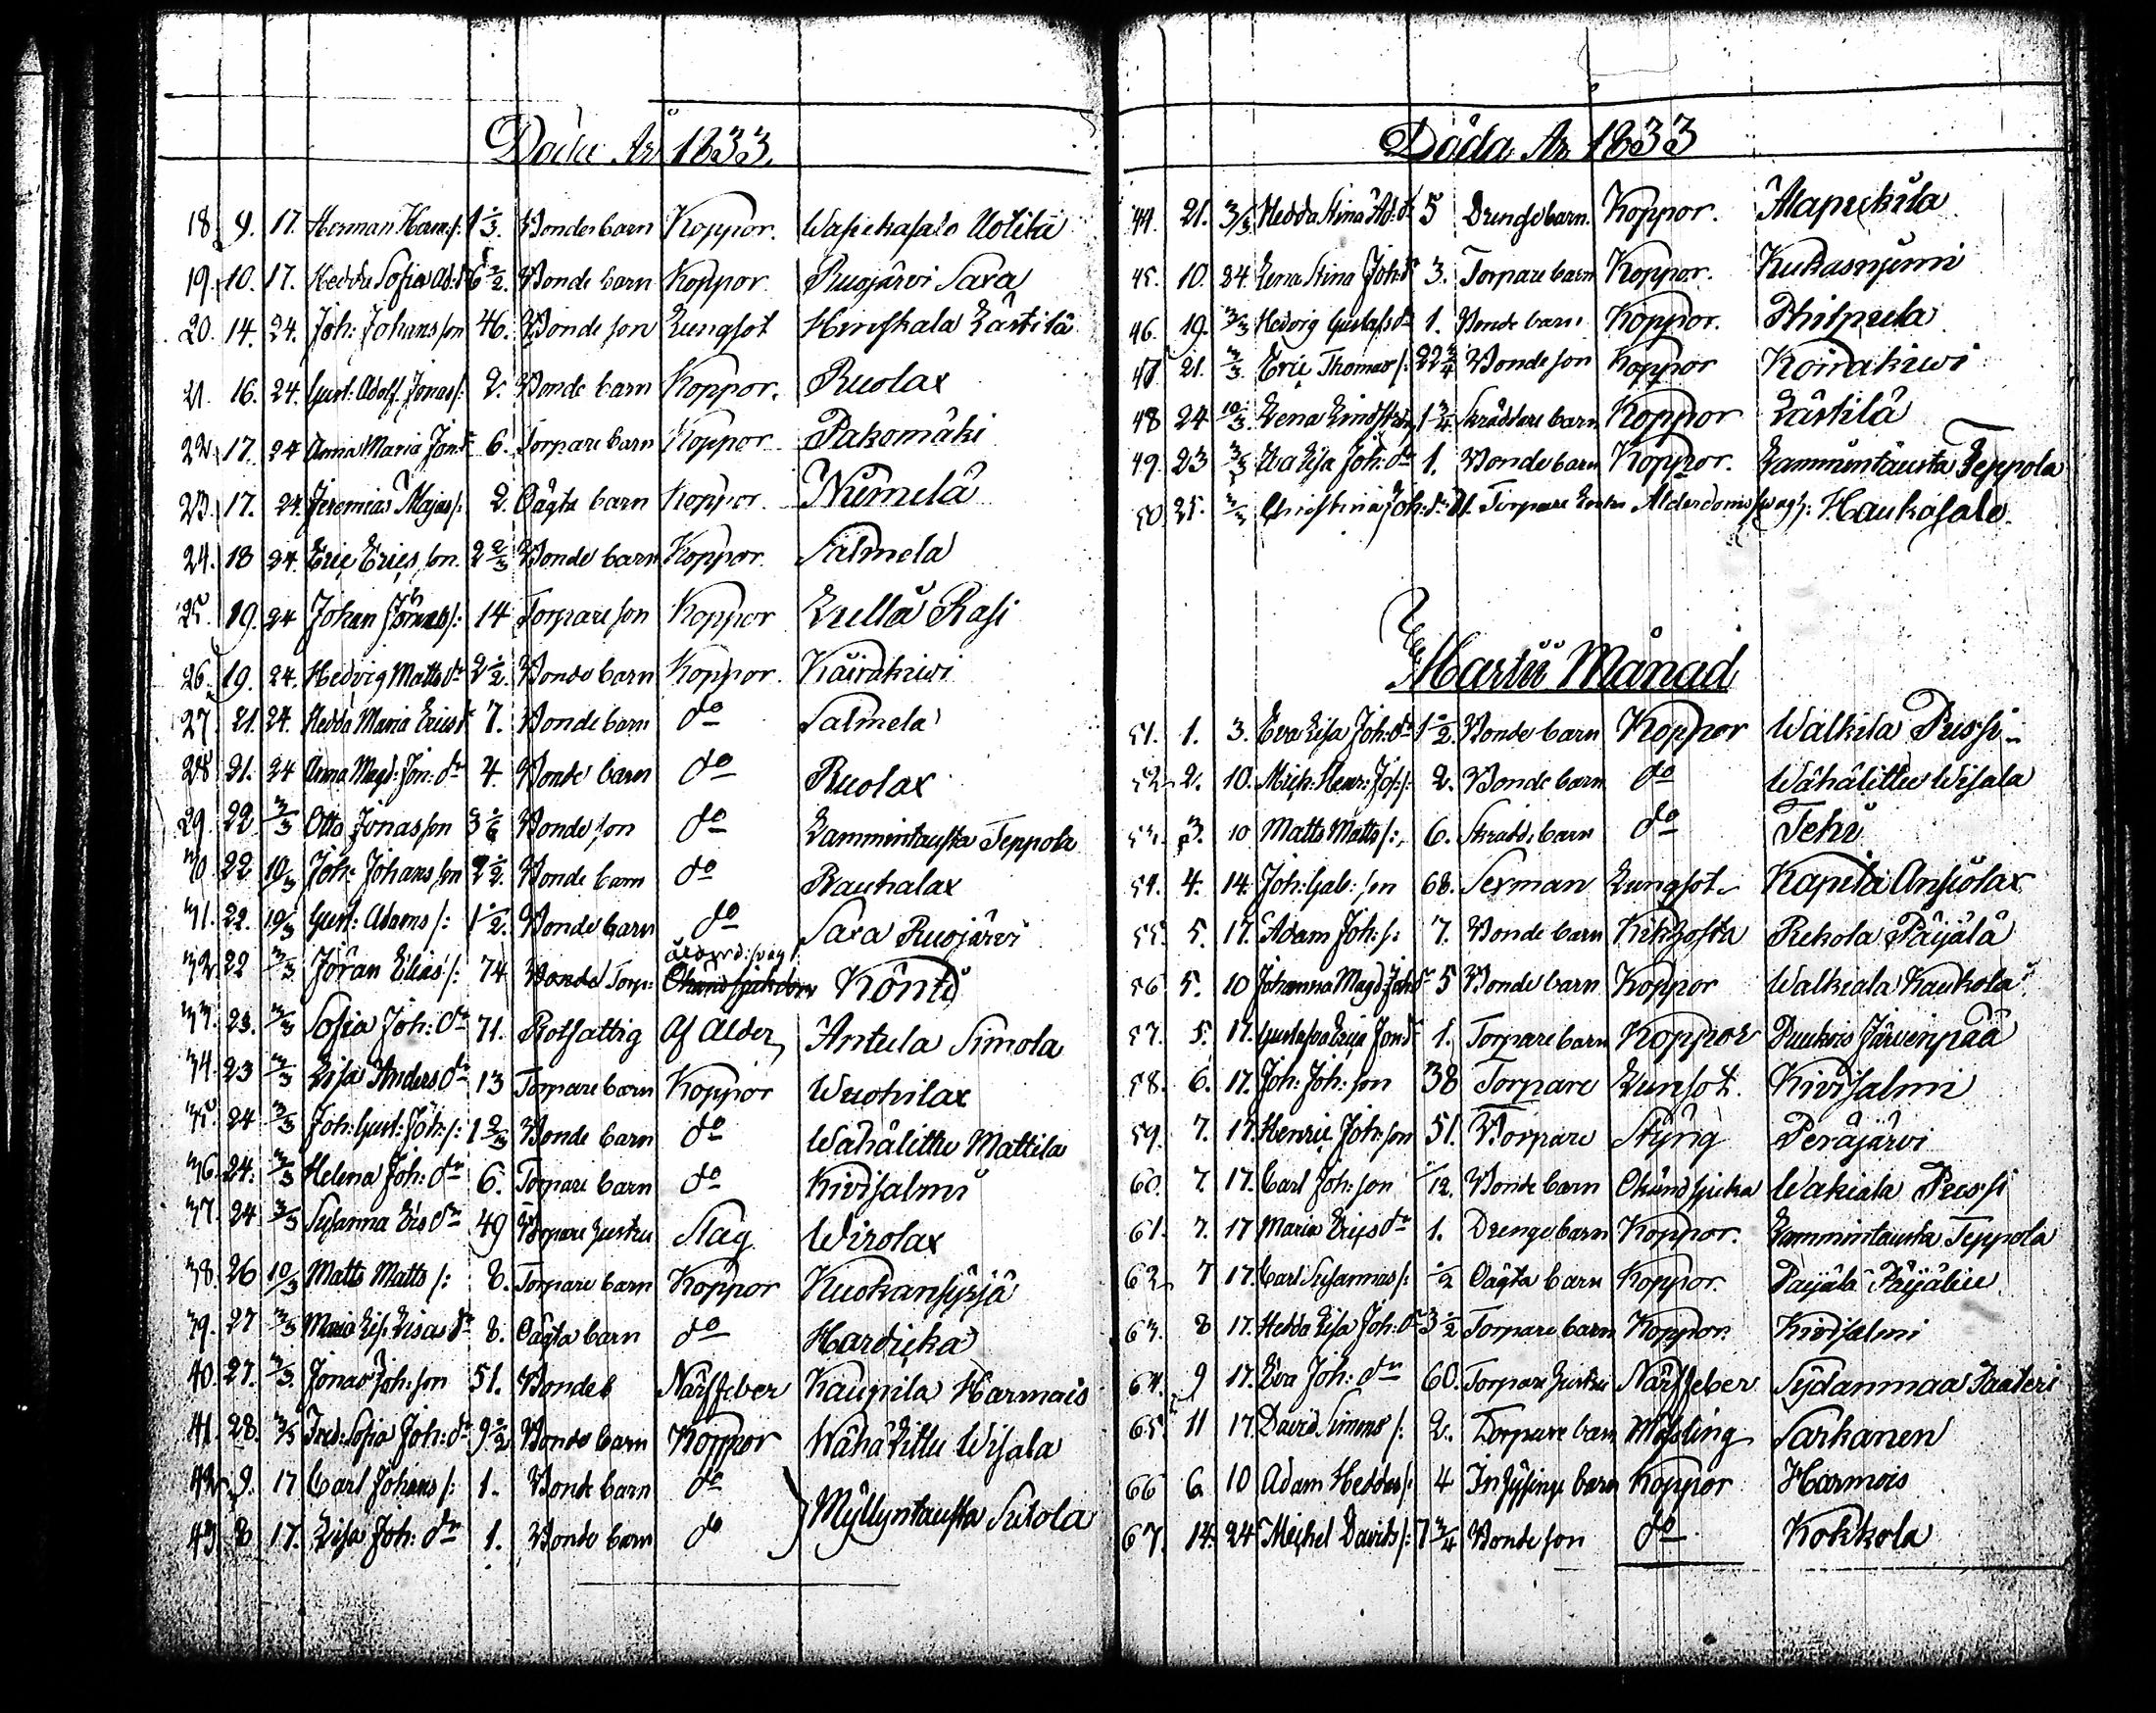 Döde År 1833
18. 9. 17. Herman Herm. s: 1 1/3. Bonde barn Koppor.
19. 10. 17. Hedda Sofia Ad: dr 6 1/2. Bonde barn Koppor Ruojärvi Sara
20. 14. 24. Joh: Johans son 46. Bonde son Lungsot Hinskala Lästilä
21. 16. 24. Gust: Adolf. Jonas s: 2. Bonde barn Koppor. Ruolax
22. 17. 24 Anna Maria Jon. dr 6. Torpare barn Koppor Pakomäki
23. 17. 24. Jeremias Majas s: 2 Oägta barn Koppor. Niemelä
24. 18 24. Eric Erics son. 2 2/3 Bonde barn Koppor. Salmela
25. 19. 24 Johan s: 14 Torpare son Koppor Lullä Rasi
26. 19. 24. Hedvig Matts dr 2 1/2. Bonde barn Koppor. Koirakivi
27. 21. 24. Hedda Maria Erics dr 7. Bonde barn do Salmela
28 21. 24 Anna Magd: Jon: dr 4. Bonde barn do Ruolax
29. 22 3/3 Otto Jonas son 3 1/6 Bonde son do Lammintausta Teppola
30. 22 10/3 Joh: Johans son 2 1/2. Bonde barn do Rauhalax
31. 22. 10/3 Gust: Adams s: 1 1/2. Bonde barn do Sara Ruojärvi
32. 22 3/3 Jöran Elias s: 74 Bonde Torp: ålderd: svagh: Okänd sjukdom Köntö
33. 23. 3/3 Sofia Joh: dr 71. Rotfattig Af Ålder Antula Simola
34. 23 3/3 Lisa Anders dr 13 Torpare barn Koppor Wuohilax
35. 24 3/3 Joh: Gust: Joh: s: 1 2/3 Bonde barn do Wähälittu Mattila
36. 24. 3/3 Helena Joh: dr 6. Torpare barn do Kivisalmi
37. 24 3/3 Susanna Eris dr 49 Torpare hustru Slag Wirolax
38. 26 10/3 Matts Matts s: 8. Torpare barn Koppor Kuokansyrjä
39. 27 3/3 Maria Lis. Lisas dr 8. Oägta barn do Hardicka
40. 27. 3/3. Jonas Joh: son 51. Bonde Närffeber Kaupila Harmais
41. 28. 3/3 Fred: Sofia Joh: dr 9 1/2 Bonde barn Koppor Wähä Littu Wisala
42. 9. 17 Carl Johans s: 1. Bonde barn do
43 8 17. Lisa Joh: dr 1. Bonde barn do Myllyntausta Sutola
Döda År 1833
44. 21. 3/3 Hedda Stina Ad: dr 5 Drenge barn. Koppor. Alapukila
45. 10. 24. Lena Stina Joh: dr 3. Torpare barn Koppor. Kukasnjemi
46. 19. 3/3 Hedvig Gustafs dr 1. Bonde barn Koppor. Philpula
47. 21. 3/3. Eric Thomas s: 22 3/4 Bonde son Koppor Koirakivi
48 24 10/3. Lena Lindström 1 3/4. Skräddare barn Koppor Lästilä
49. 23 3/3 Eva Lisa Joh: dr 1. Bonde barn Koppor. Lammintausta Teppola
50. 25. 3/3 Christina Joh: dr 71. Torpare Enka Ålderdoms svagh: Haukasalo.
Martii Månad
51. 1. 3. Eva Lisa Joh: dr 1 1/2. Bonde barn Koppor Walkila Pussi
52. 2. 10. Mich: Henr: Joh: s: 2. Bonde barn do Wähälittu Wisala
53. 3. 10 Matts Matts s:, 6. Skradd. barn do Tehi
54. 4. 14. Joh: Gab: son 68. Sexman Lungsot Kapila Ansiolax
55. 5. 17. Adam Joh: s: 7. Bonde barn Kikhosta Rekola Päijälä
56 5. 10 Johanna Magd: Joh dr 5 Bonde barn Koppor Walkiala Kaukola
57. 5. 17. Jon dr 1. Torpare barn Koppor Puukois Järvenpää
58. 6. 17. Joh: Joh: son 38 Torpare Lunsot. Kivisalmi
59. 7. 17. Henric Joh: son 51. Torpare Styng Peräjärvi
60. 7. 17. Carl Joh: son 1/12. Bonde barn Okänd sjuka Wakiala Pussi
61. 7. 17 Maria Erics dr 1. Drenge barn Koppor. Lammintausta Teppola
62. 7 17. Carl Susannas s: 1/2 Oägta barn Koppor. Päijälä
63. 8 17. Hedda Lisa Joh: dr 3 1/2 Torpare barn Koppor. Kivisalmi
64. 9 17. Eva Joh: dr 60. Torpare hustru Närffeber Sydanmaa Taateri
65. 11 17. David Simms s: 2. Torpare barn Mässling Särkanen
66 6. 10 Adam Heddas s: 4 Inhysinge barn Koppor Harmois
67. 14. 24 Michel Davids s: 7 3/4 Bonde son do Kokkola